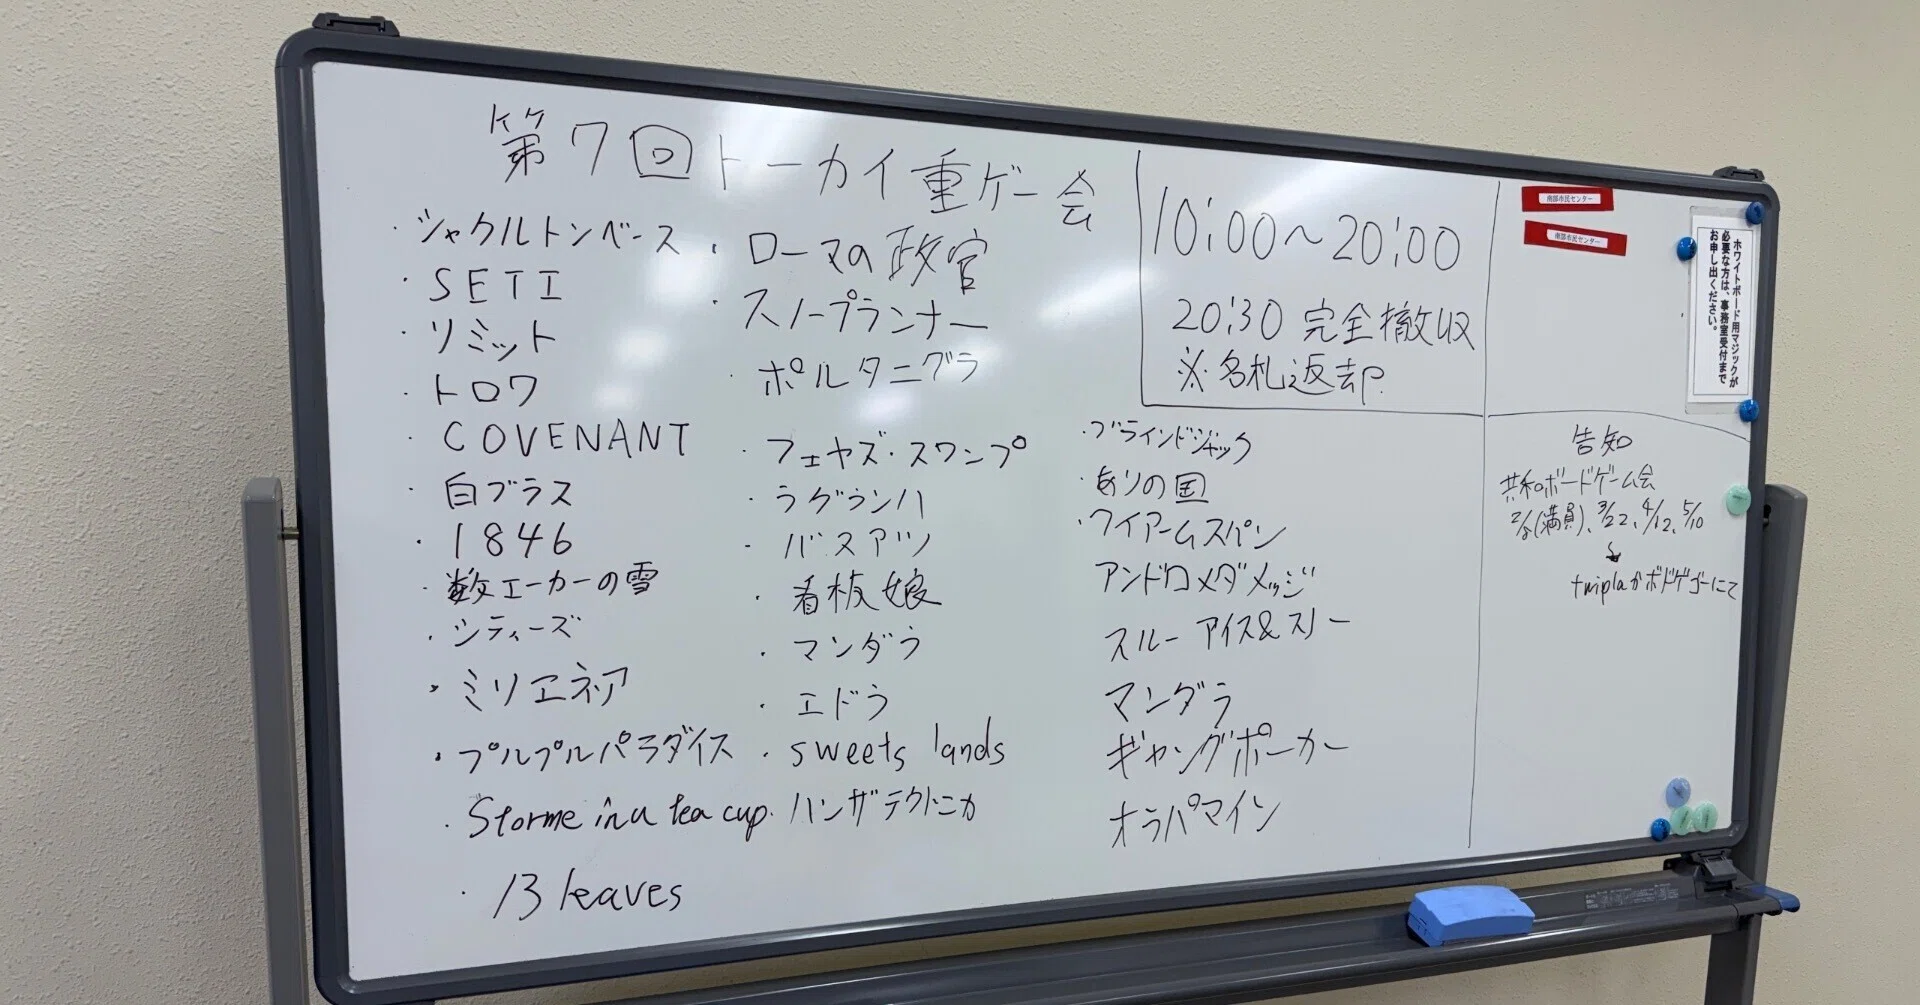 第7回トーカイ重ゲー会
・シャクルトンベース
・SETI
・リミット
・トロワ
・COVENANT
・白ブラス
・1846
・数エーカーの雪
・シティーズ
・ミリエネア
・プルプルパラダイス
・Storme in a tea cup
・13 leaves
・ローマの政官
・スノープランナー
・ポルタニグラ
・フェヤズ・スワンプ
・ラグランハ
・バスアツ
・看板娘
・マンダラ
・エドラ
・sweets lands
・ハンザテクトニカ
・ブラインドジャック
・ありの国
・ワイアームスパン
アンドロメダメッジ
スルー アイス&スノー
マンダラ
ギャングポーカー
オラパマイン
10:00~20:00
20:30 完全撤収
※名札返却
南部市民センター
南部市民センター
ホワイトボード用マジックが
必要な方は、事務室受付まで
お申し出ください。
告知
共和ボードゲーム会
(満員)、3/22、4/12、5/10
twiplaかボドゲゴーにて